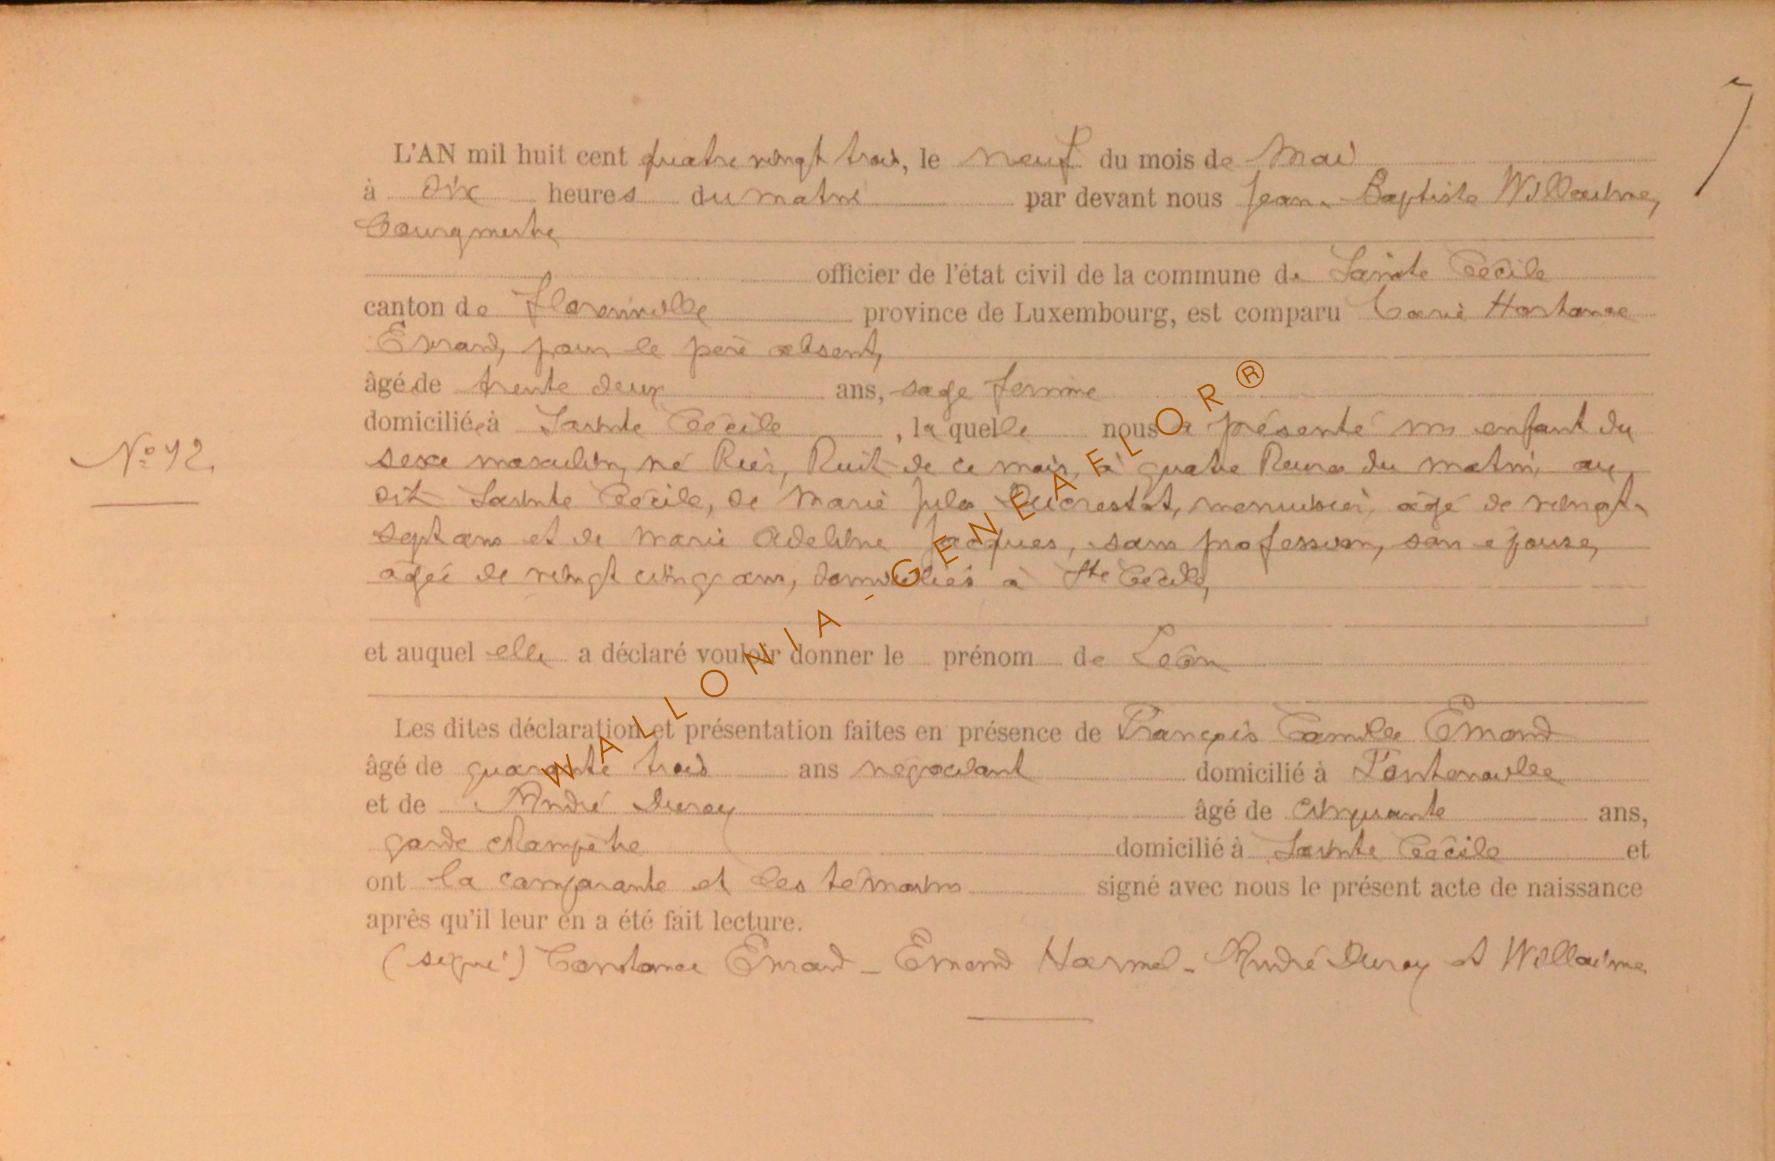 7
L'AN mil huit cent quatre vingt trois, le neuf du mois de Mai
à dix heures du matin par devant nous Jean-Baptiste Willaime,
Bourgmestre
officier de l'état civil de la commune de Sainte Cécile
canton de Florenville province de Luxembourg, est comparu Constance
Emard, pour le père absent,
âgée de trente deux ans, sage femme
domiciliée à Sainte Cécile, laquelle nous a présenté un enfant du
No 12. sexe masculin, né hier, huit de ce mois, à quatre heures du matin, au
dit Sainte Cécile, de Marie Jules Ducrestot, menuisier, âgé de vingt-
sept ans et de Marie Adeline Jacques, sans profession, son épouse,
âgée de vingt cinq ans, domiciliés à Ste Cécile,
et auquel elle a déclaré vouloir donner le prénom de Léon
Les dites déclaration et présentation faites en présence de François Camille Emond
âgé de quarante trois ans négociant domicilié à Fontenoille
et de André Duroy âgé de cinquante ans,
garde champêtre domicilié à Sainte Cécile et
ont la comparante et les témoins signé avec nous le présent acte de naissance
après qu'il leur en a été fait lecture.
(signé) Constance Emard - Emond Harmel - André Duroy et Willaime
WALLONIA-GENEAFLOR®